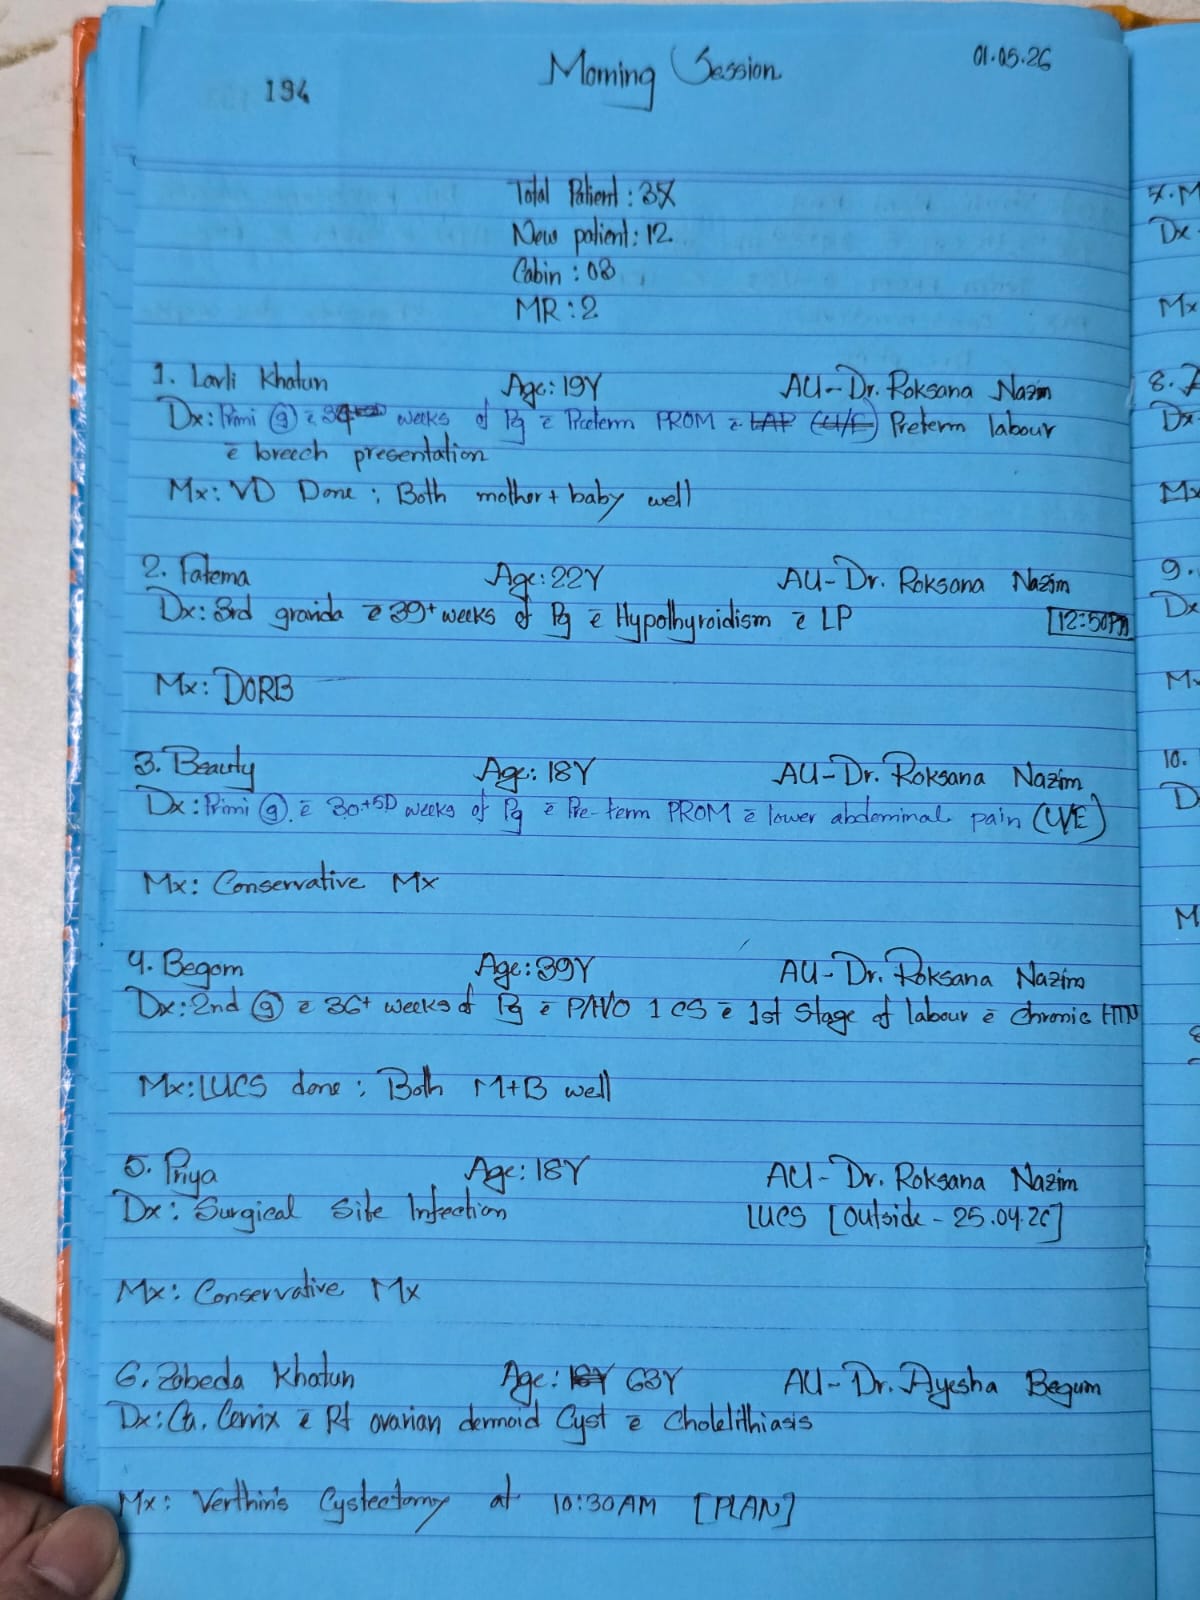 194
Morning Session
01.05.26
Total Patient : 37
New patient: 12
Cabin : 03
MR : 2
1. Lavli Khatun Age: 19Y AU- Dr. Roksana Nazim
Dx: Primi (g) c̄ weeks of Pg c̄ Preterm PROM c̄ Preterm labour
c̄ breech presentation
Mx: VD Done ; Both mother + baby well
2. Fatema Age: 22Y AU- Dr. Roksana Nazim
Dx: 3rd gravida c̄ 39+ weeks of Pg c̄ Hypothyroidism c̄ LP [12:50PM]
Mx: DORB
3. Beauty Age: 18Y AU- Dr. Roksana Nazim
Dx: Primi (g). c̄ 30+5D weeks of Pg c̄ Pre-term PROM c̄ lower abdominal pain
Mx: Conservative Mx
4. Begom Age: 39Y AU- Dr. Roksana Nazim
Dx: 2nd (g) c̄ 36+ weeks of Pg c̄ P/H/O 1 CS c̄ 1st Stage of labour c̄ Chronic HTN
Mx: LUCS done ; Both M+B well
5. Priya Age: 18Y AU- Dr. Roksana Nazim
Dx: Surgical Site Infection LUCS [Outside - 25.04.26]
Mx: Conservative Mx
6. Zobeda Khatun Age: 63Y AU- Dr. Ayesha Begum
Dx: Ca. Cervix c̄ Rt ovarian dermoid Cyst c̄ Cholelithiasis
Mx: Cystectomy at 10:30AM [PLAN]
10.
8.
9.
Dx
Mx